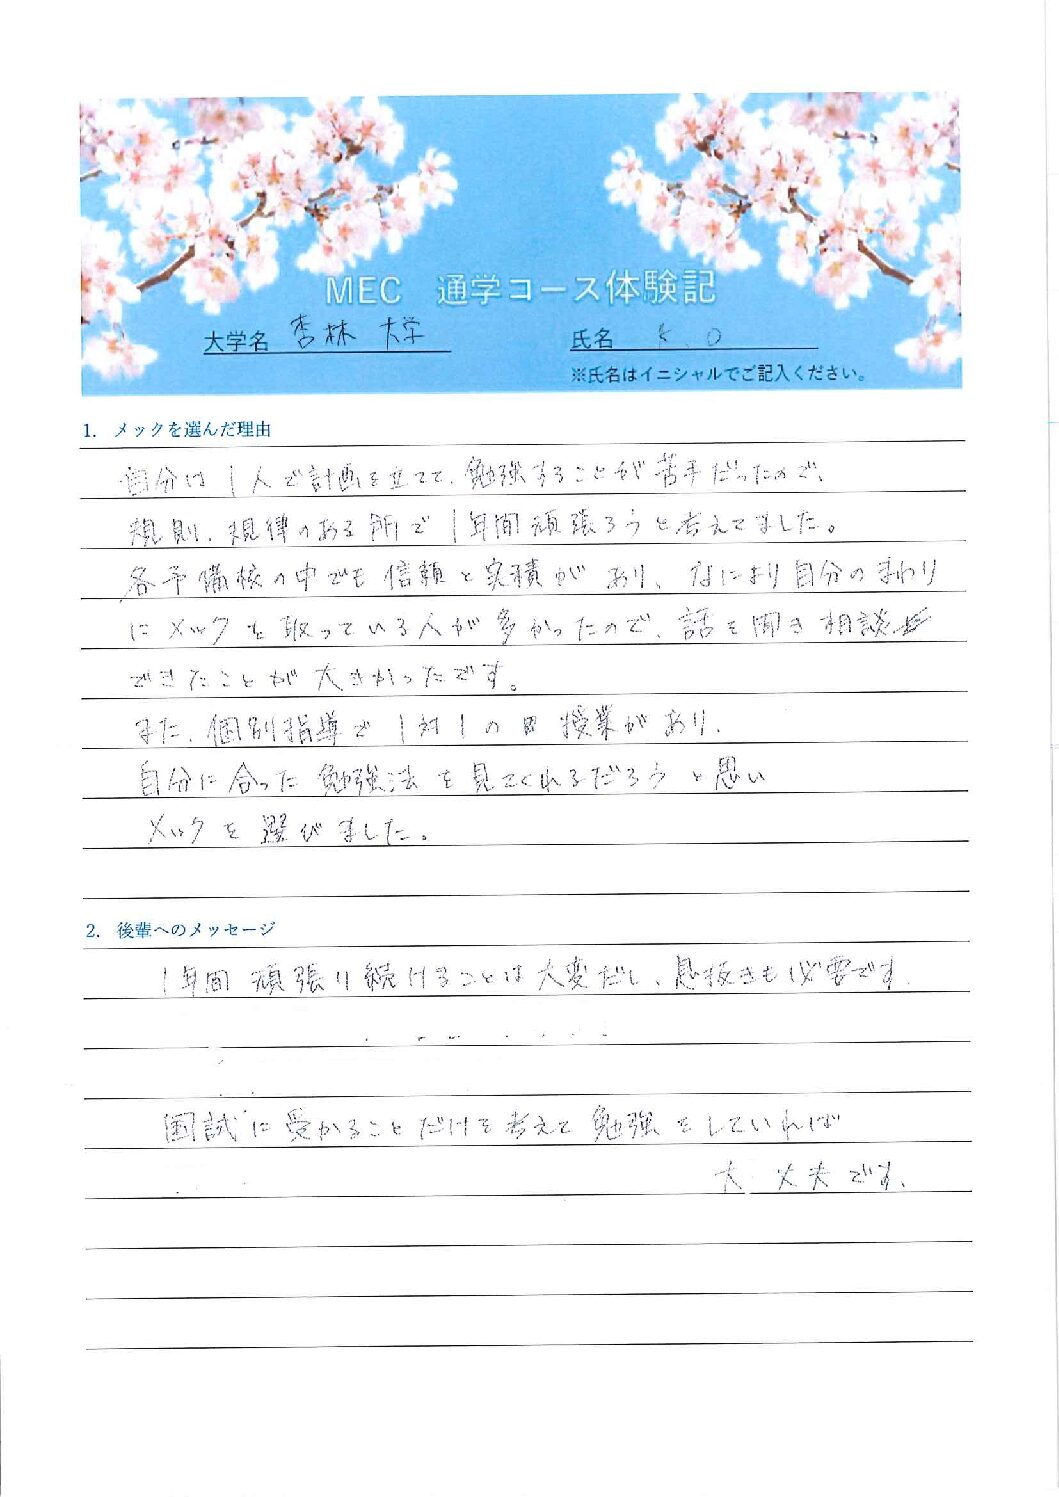 MEC 通学コース体験記
大学名 杏林 大学 氏名 K.O
※氏名はイニシャルでご記入ください。
1. メックを選んだ理由
自分は1人で計画を立てて、勉強することが苦手だったので、
規則、規律のある所で1年間頑張ろうと考えてました。
各予備校の中でも信頼と実積があり、なにより自分のまわり
にメックを取っている人が多かったので、話を聞き相談
できたことが大きかったです。
また、個別指導で1対1の授業があり、
自分に合った勉強法を見てくれるだろうと思い
メックを選びました。
2. 後輩へのメッセージ
1年間頑張り続けることは大変だし、息抜きも必要です。
国試に受かることだけを考えて勉強をしていれば
大丈夫です。